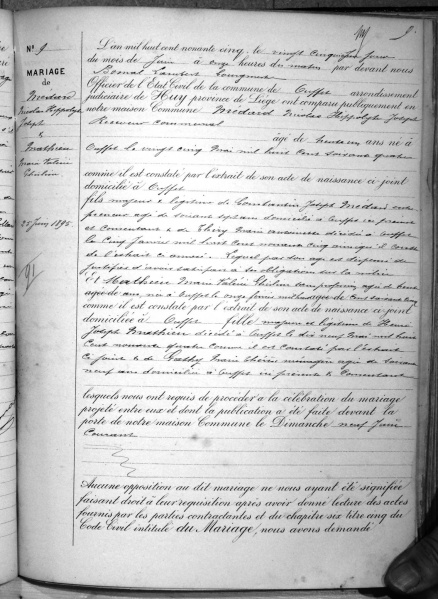 9.
N° 9
MARIAGE
de
Medard
Nicolas Hippolyte
Joseph
&
Mathieu
Marie
25 Juin 1895
L'an mil huit cent nonante cinq, le vingt cinquième jour
du mois de Juin à onze heures du matin par devant nous
Lambert
Officier de l'Etat Civil de la commune de Ouffet arrondissement
judiciaire de Huy province de Liége ont comparu publiquement en
notre maison Commune Medard Nicolas Hippolyte Joseph
Receveur communal
âgé de trente un ans né à
Ouffet le vingt cinq Mai mil huit cent soixante quatre
comme il est constaté par l'extrait de son acte de naissance ci joint
domicilié à Ouffet
fils majeur & légitime de Joseph Medard
agé de soixante sept ans domicilié à Ouffet ci présent
et consentant & de Marie décédée à Ouffet
le Cinq Janvier mil huit cent nonante cinq ainsi qu'il conste
de l'extrait ci annexé. Lequel par son age est dispensé de
justifier d'avoir satisfait à la obligation sur la milice
Et Mathieu Marie sans profession, agée de trente
ans, née à Ouffet le onze
comme il est constaté par l'extrait de son acte de naissance ci joint
domiciliée à Ouffet fille majeure et légitime de Henri
Joseph Mathieu décédé à Ouffet le dix neuf Mai mil huit
Cent nonante quatre comme il est constaté par l'extrait
ci joint & de Marie ménagère agée de soixante
neuf ans domiciliée à Ouffet ci présente & consentant
lesquels nous ont requis de procéder à la célébration du mariage
projeté entre eux et dont la publication a été faite devant la
porte de notre maison Commune le Dimanche neuf Juin
Courant
Aucune opposition au dit mariage ne nous ayant été signifiée
faisant droit à leur requisition après avoir donné lecture des actes
fournis par les parties contractantes et du chapitre six titre cinq du
Code Civil intitulé du Mariage, nous avons demandé